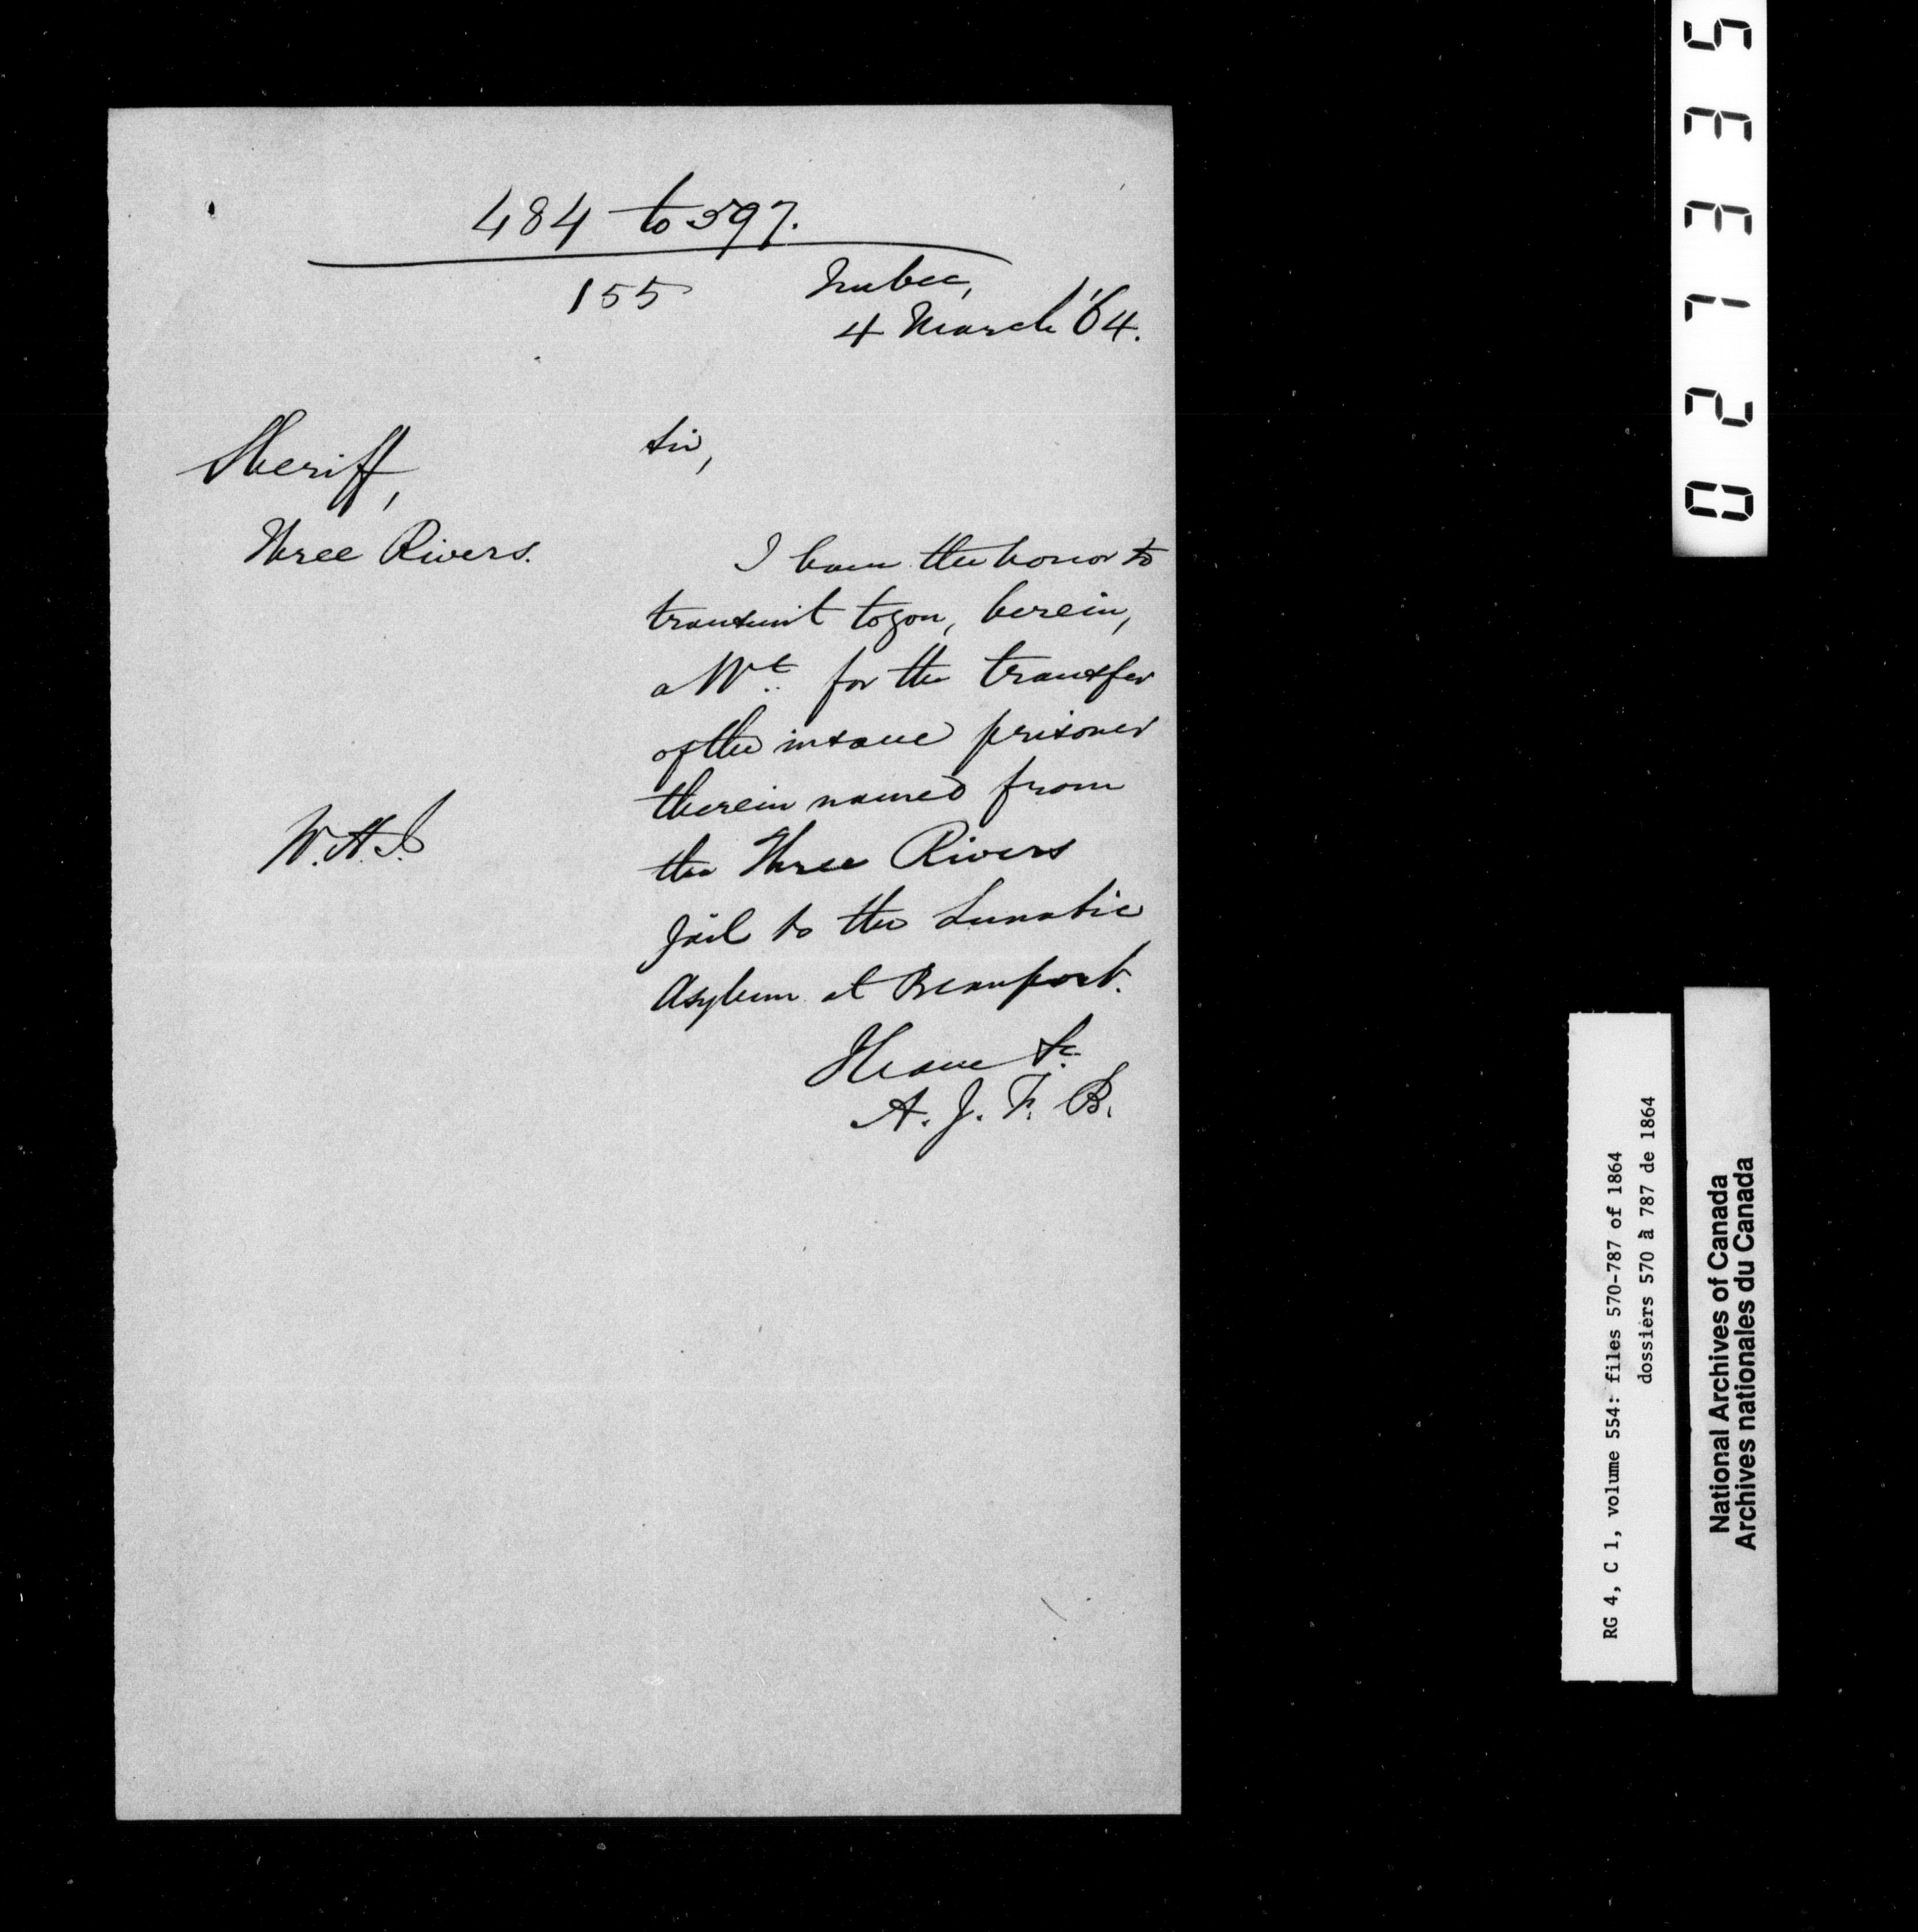 484 to 597.
155
Quebec,
4 March '64.
Sheriff,
Three Rivers.
W.H.J.
Sir,
I have the honor to
transmit to you, herein,
a Wt. for the transfer
of the insane prisoner
therein named from
the Three Rivers
Jail to the Lunatic
Asylum at Beauport.
I have &c.
A. J. F. B.
027335
RG 4, C 1, volume 554: files 570-787 of 1864
dossiers 570 à 787 de 1864
National Archives of Canada
Archives nationales du Canada